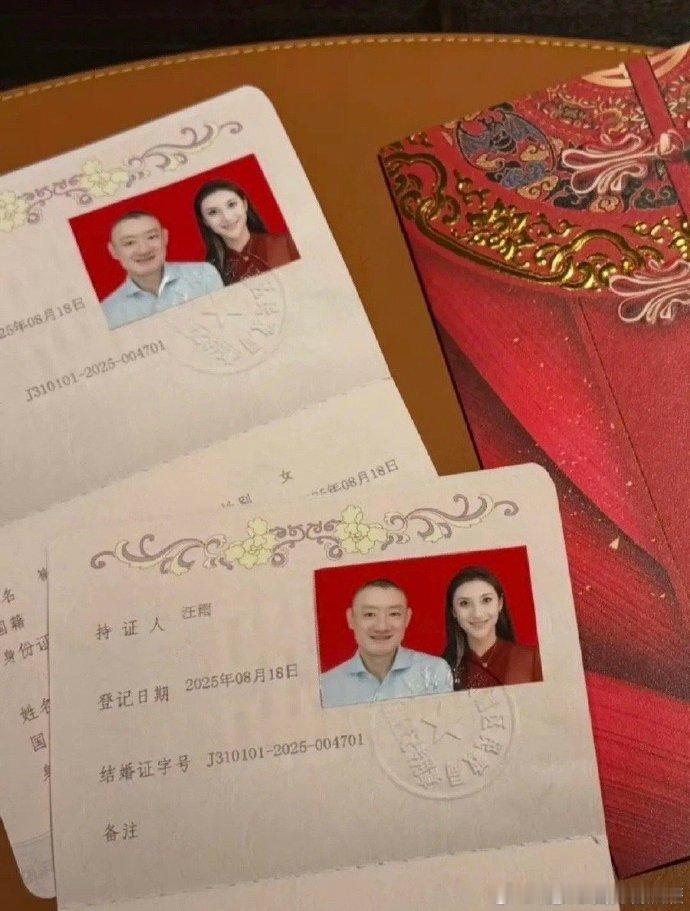 25年08月18日
J310101-2025-004701
性别 女
2025年08月18日
名
国籍
身份证
姓名
国
持证人 汪雨
登记日期 2025年08月18日
结婚证字号 J310101-2025-004701
备注